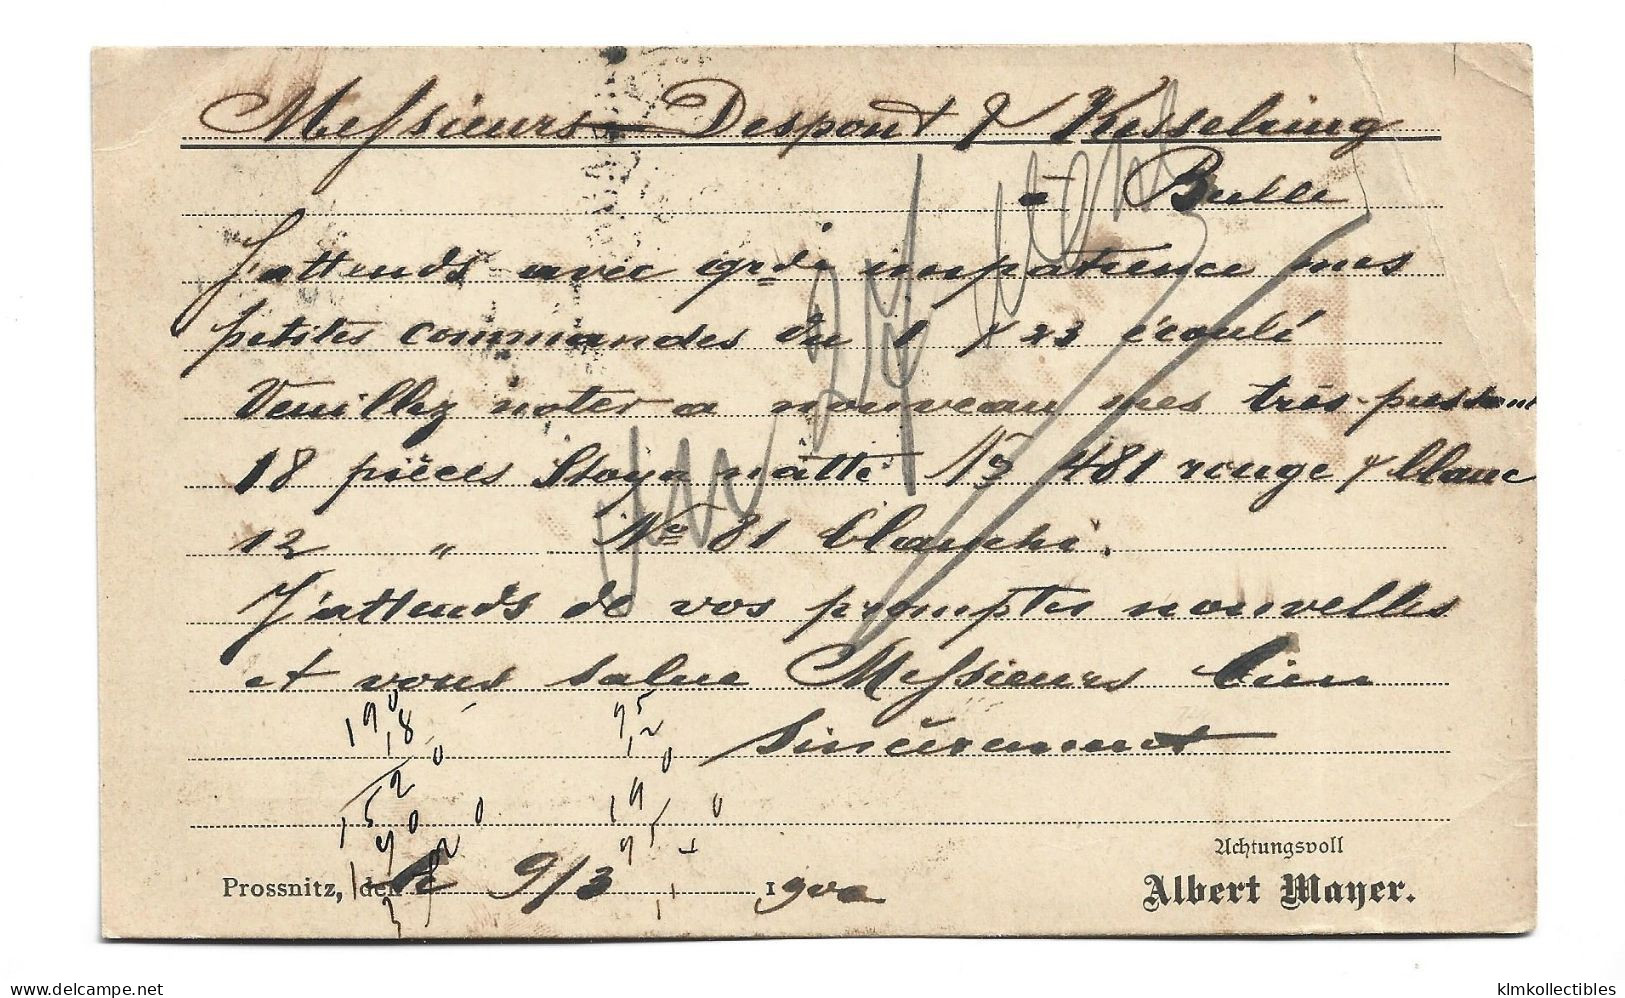 Messieurs Despont & Kesselring
à Bulle
J'attends avec grde impatience mes
petites commandes du 1 & 23 écoulé
Veuillez noter a nouveau mes très-pressant
18 pièces Stoya natté No 481 rouge & blanc
12 " No 81 blanche.
J'attends de vos promptes nouvelles
et vous salue Messieurs bien
sincèrement
190 95
18 12
0 0
152 19 0
190 0 95
Achtungsvoll
Prossnitz, den le 9/3 1900 Albert Mayer.
www.delcampe.net klmkollectibles